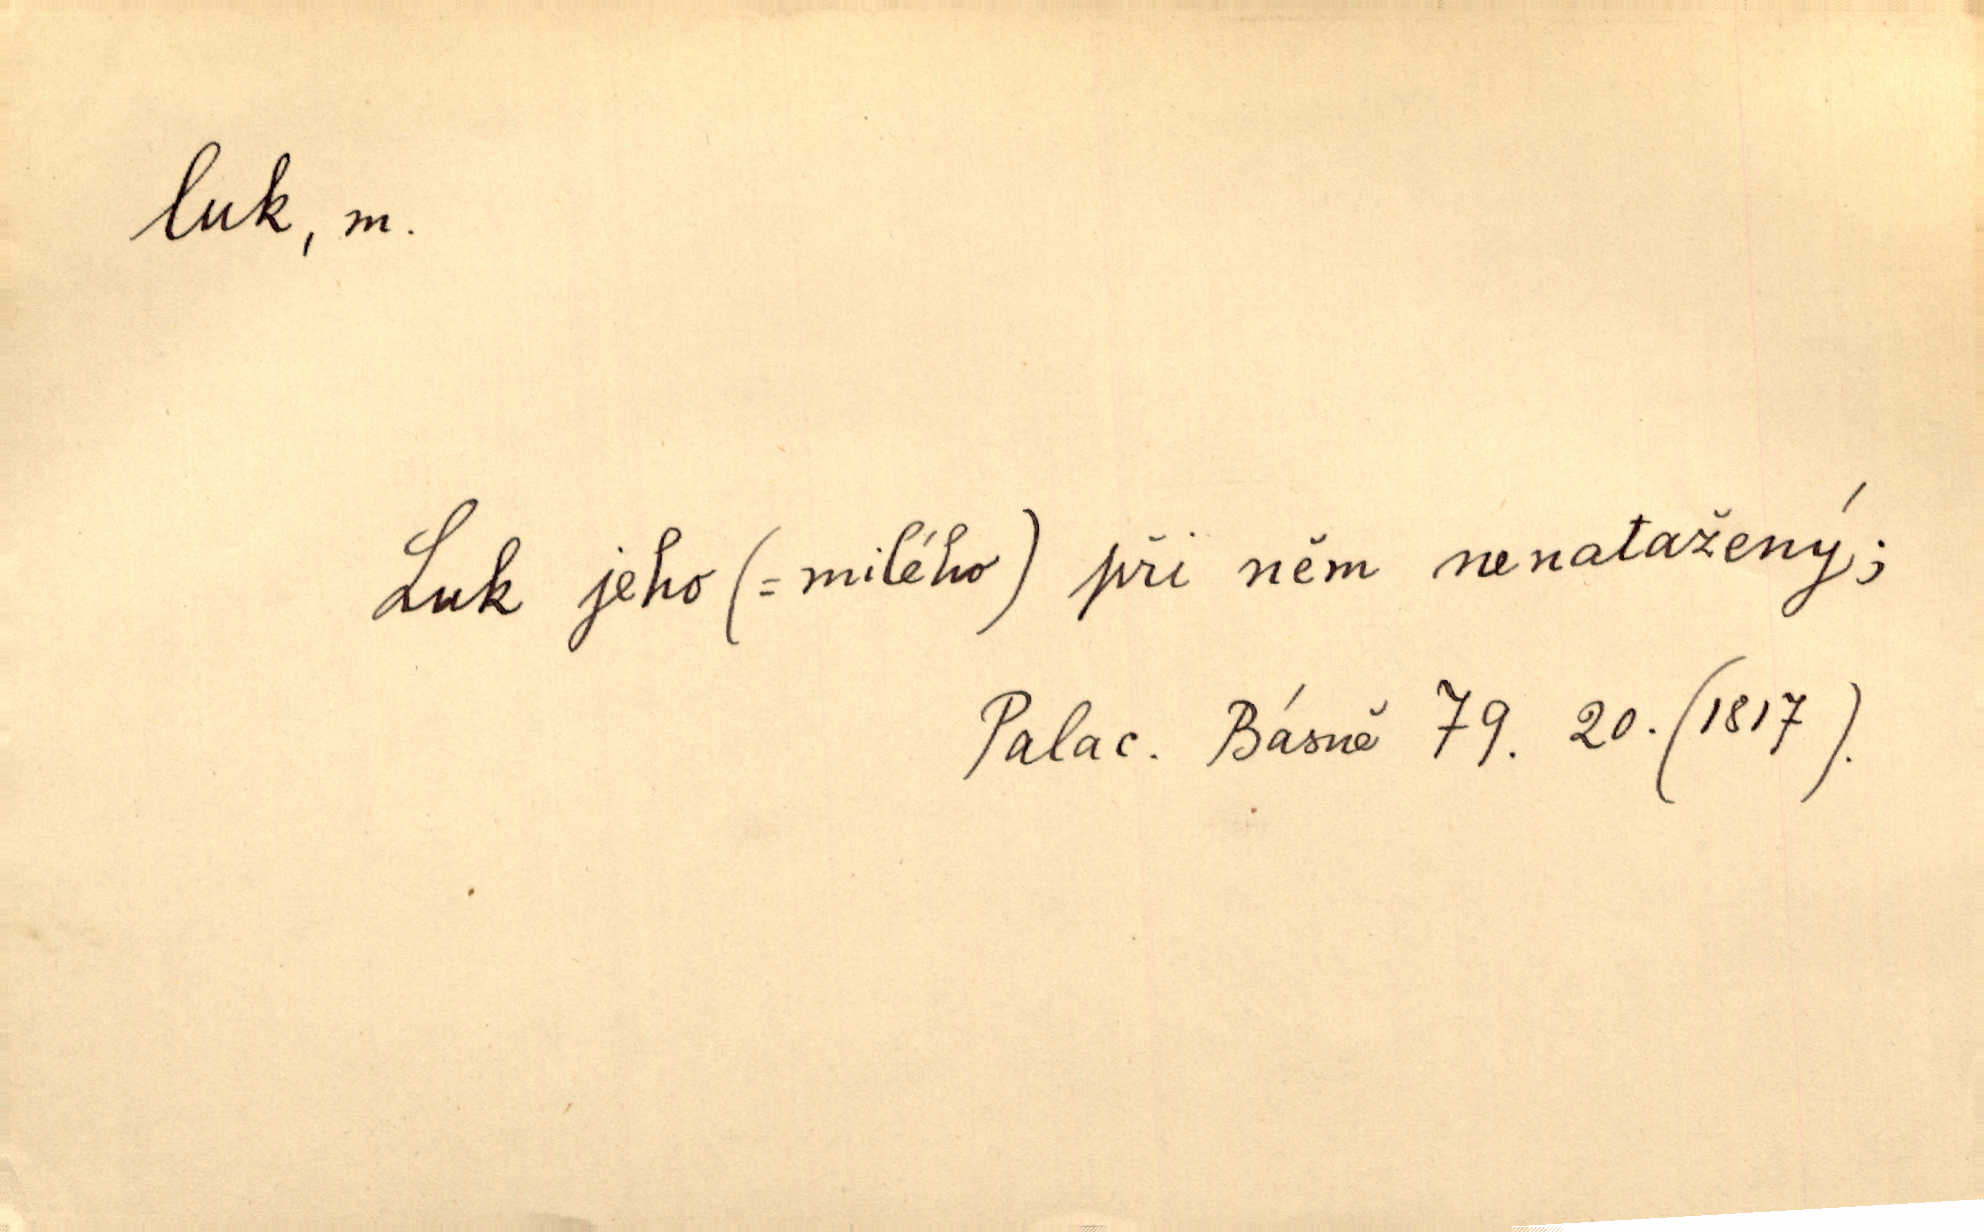 luk, m.
Luk jeho (= milého) při něm nenatažený;
Palac. Básně 79. 20. (1817).